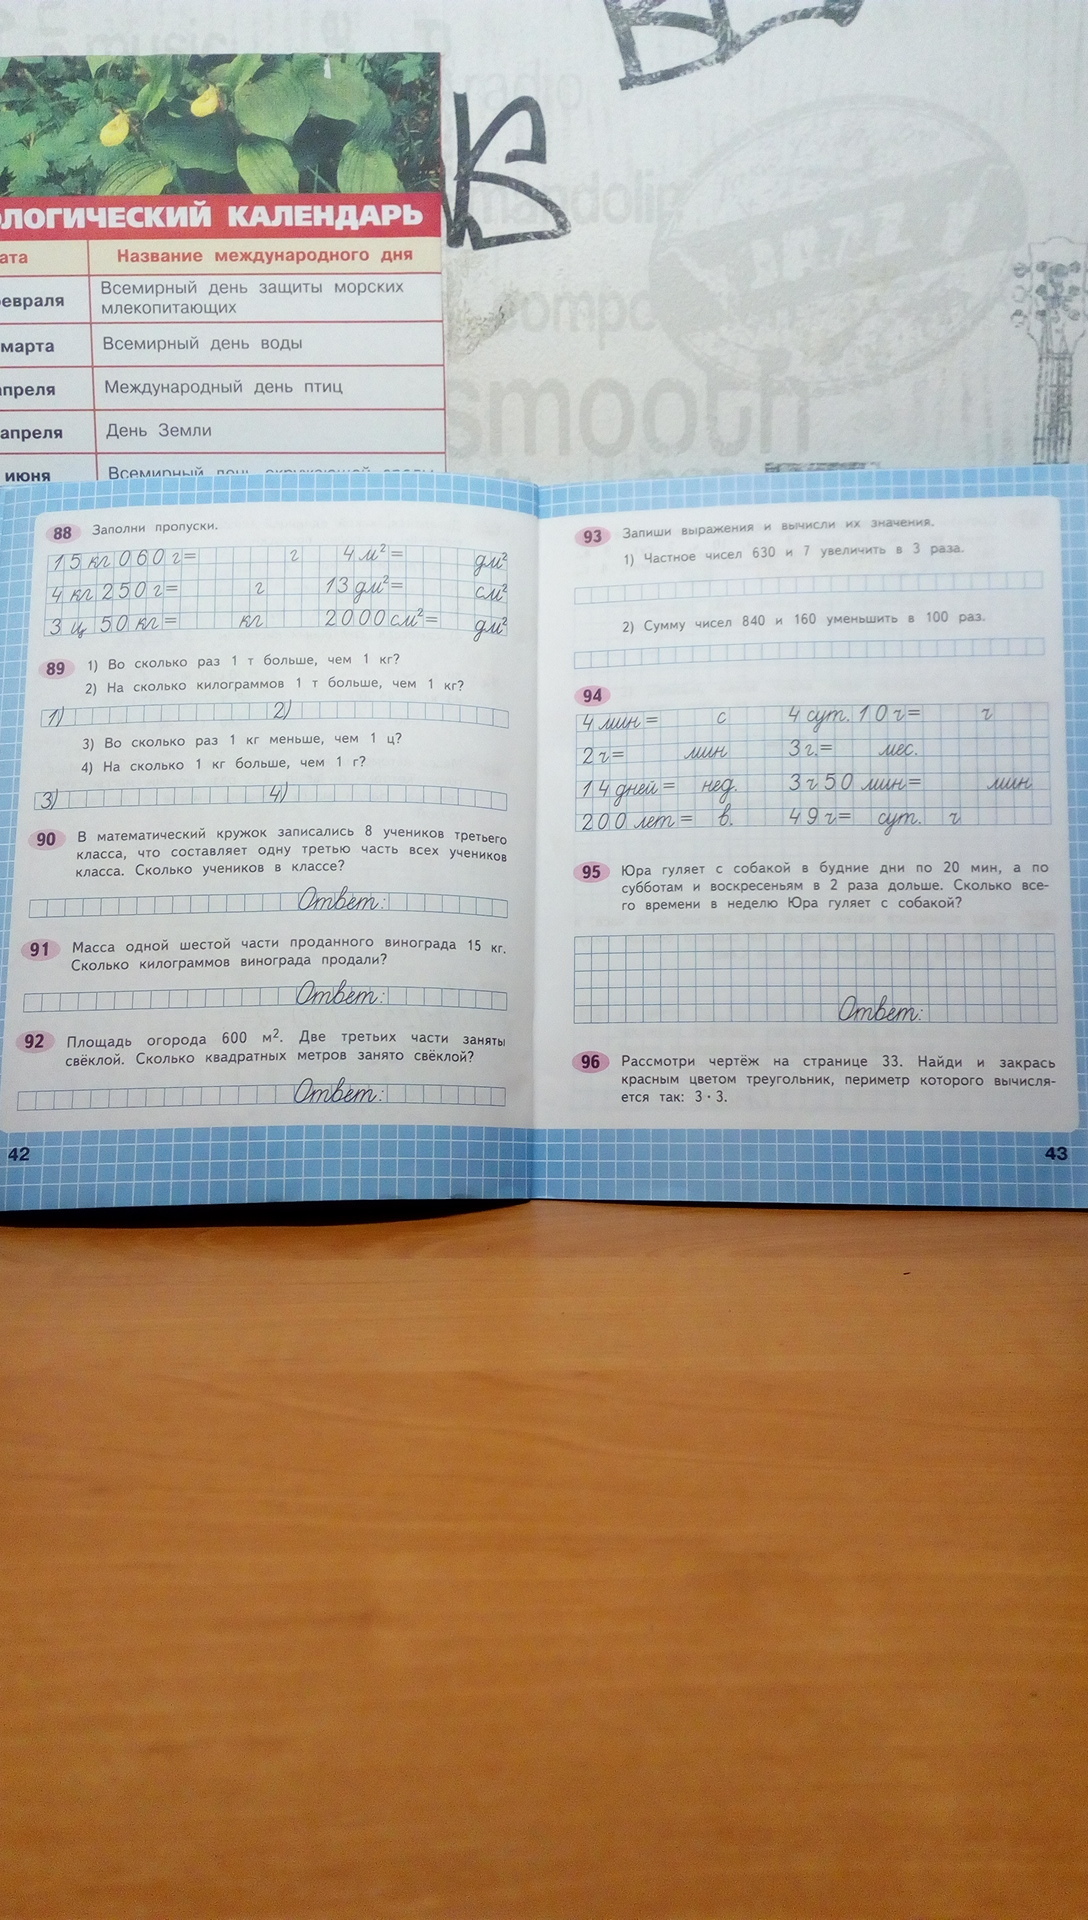 music
radio
mandolin
smooth
ОЛОГИЧЕСКИЙ КАЛЕНДАРЬ
ата Название международного дня
февраля Всемирный день защиты морских
млекопитающих
марта Всемирный день воды
апреля Международный день птиц
апреля День Земли
июня Всемирный день окружающей среды
88 Заполни пропуски.
15 кг 060 г = г 4 м² = дм²
4 кг 250 г = г 13 дм² = см²
3 ц 50 кг = кг 2000 см² = дм²
89 1) Во сколько раз 1 т больше, чем 1 кг?
2) На сколько килограммов 1 т больше, чем 1 кг?
1) 2)
3) Во сколько раз 1 кг меньше, чем 1 ц?
4) На сколько 1 кг больше, чем 1 г?
3) 4)
90 В математический кружок записались 8 учеников третьего
класса, что составляет одну третью часть всех учеников
класса. Сколько учеников в классе?
Ответ:
91 Масса одной шестой части проданного винограда 15 кг.
Сколько килограммов винограда продали?
Ответ:
92 Площадь огорода 600 м². Две третьих части заняты
свёклой. Сколько квадратных метров занято свёклой?
Ответ:
42
93 Запиши выражения и вычисли их значения.
1) Частное чисел 630 и 7 увеличить в 3 раза.
2) Сумму чисел 840 и 160 уменьшить в 100 раз.
94
4 мин = с 4 сут. 10 ч = ч
2 ч = мин 3 г. = мес.
14 дней = нед. 3 ч 50 мин = мин
200 лет = в. 49 ч = сут. ч
95 Юра гуляет с собакой в будние дни по 20 мин, а по
субботам и воскресеньям в 2 раза дольше. Сколько все-
го времени в неделю Юра гуляет с собакой?
Ответ:
96 Рассмотри чертёж на странице 33. Найди и закрась
красным цветом треугольник, периметр которого вычисля-
ется так: 3 · 3.
43